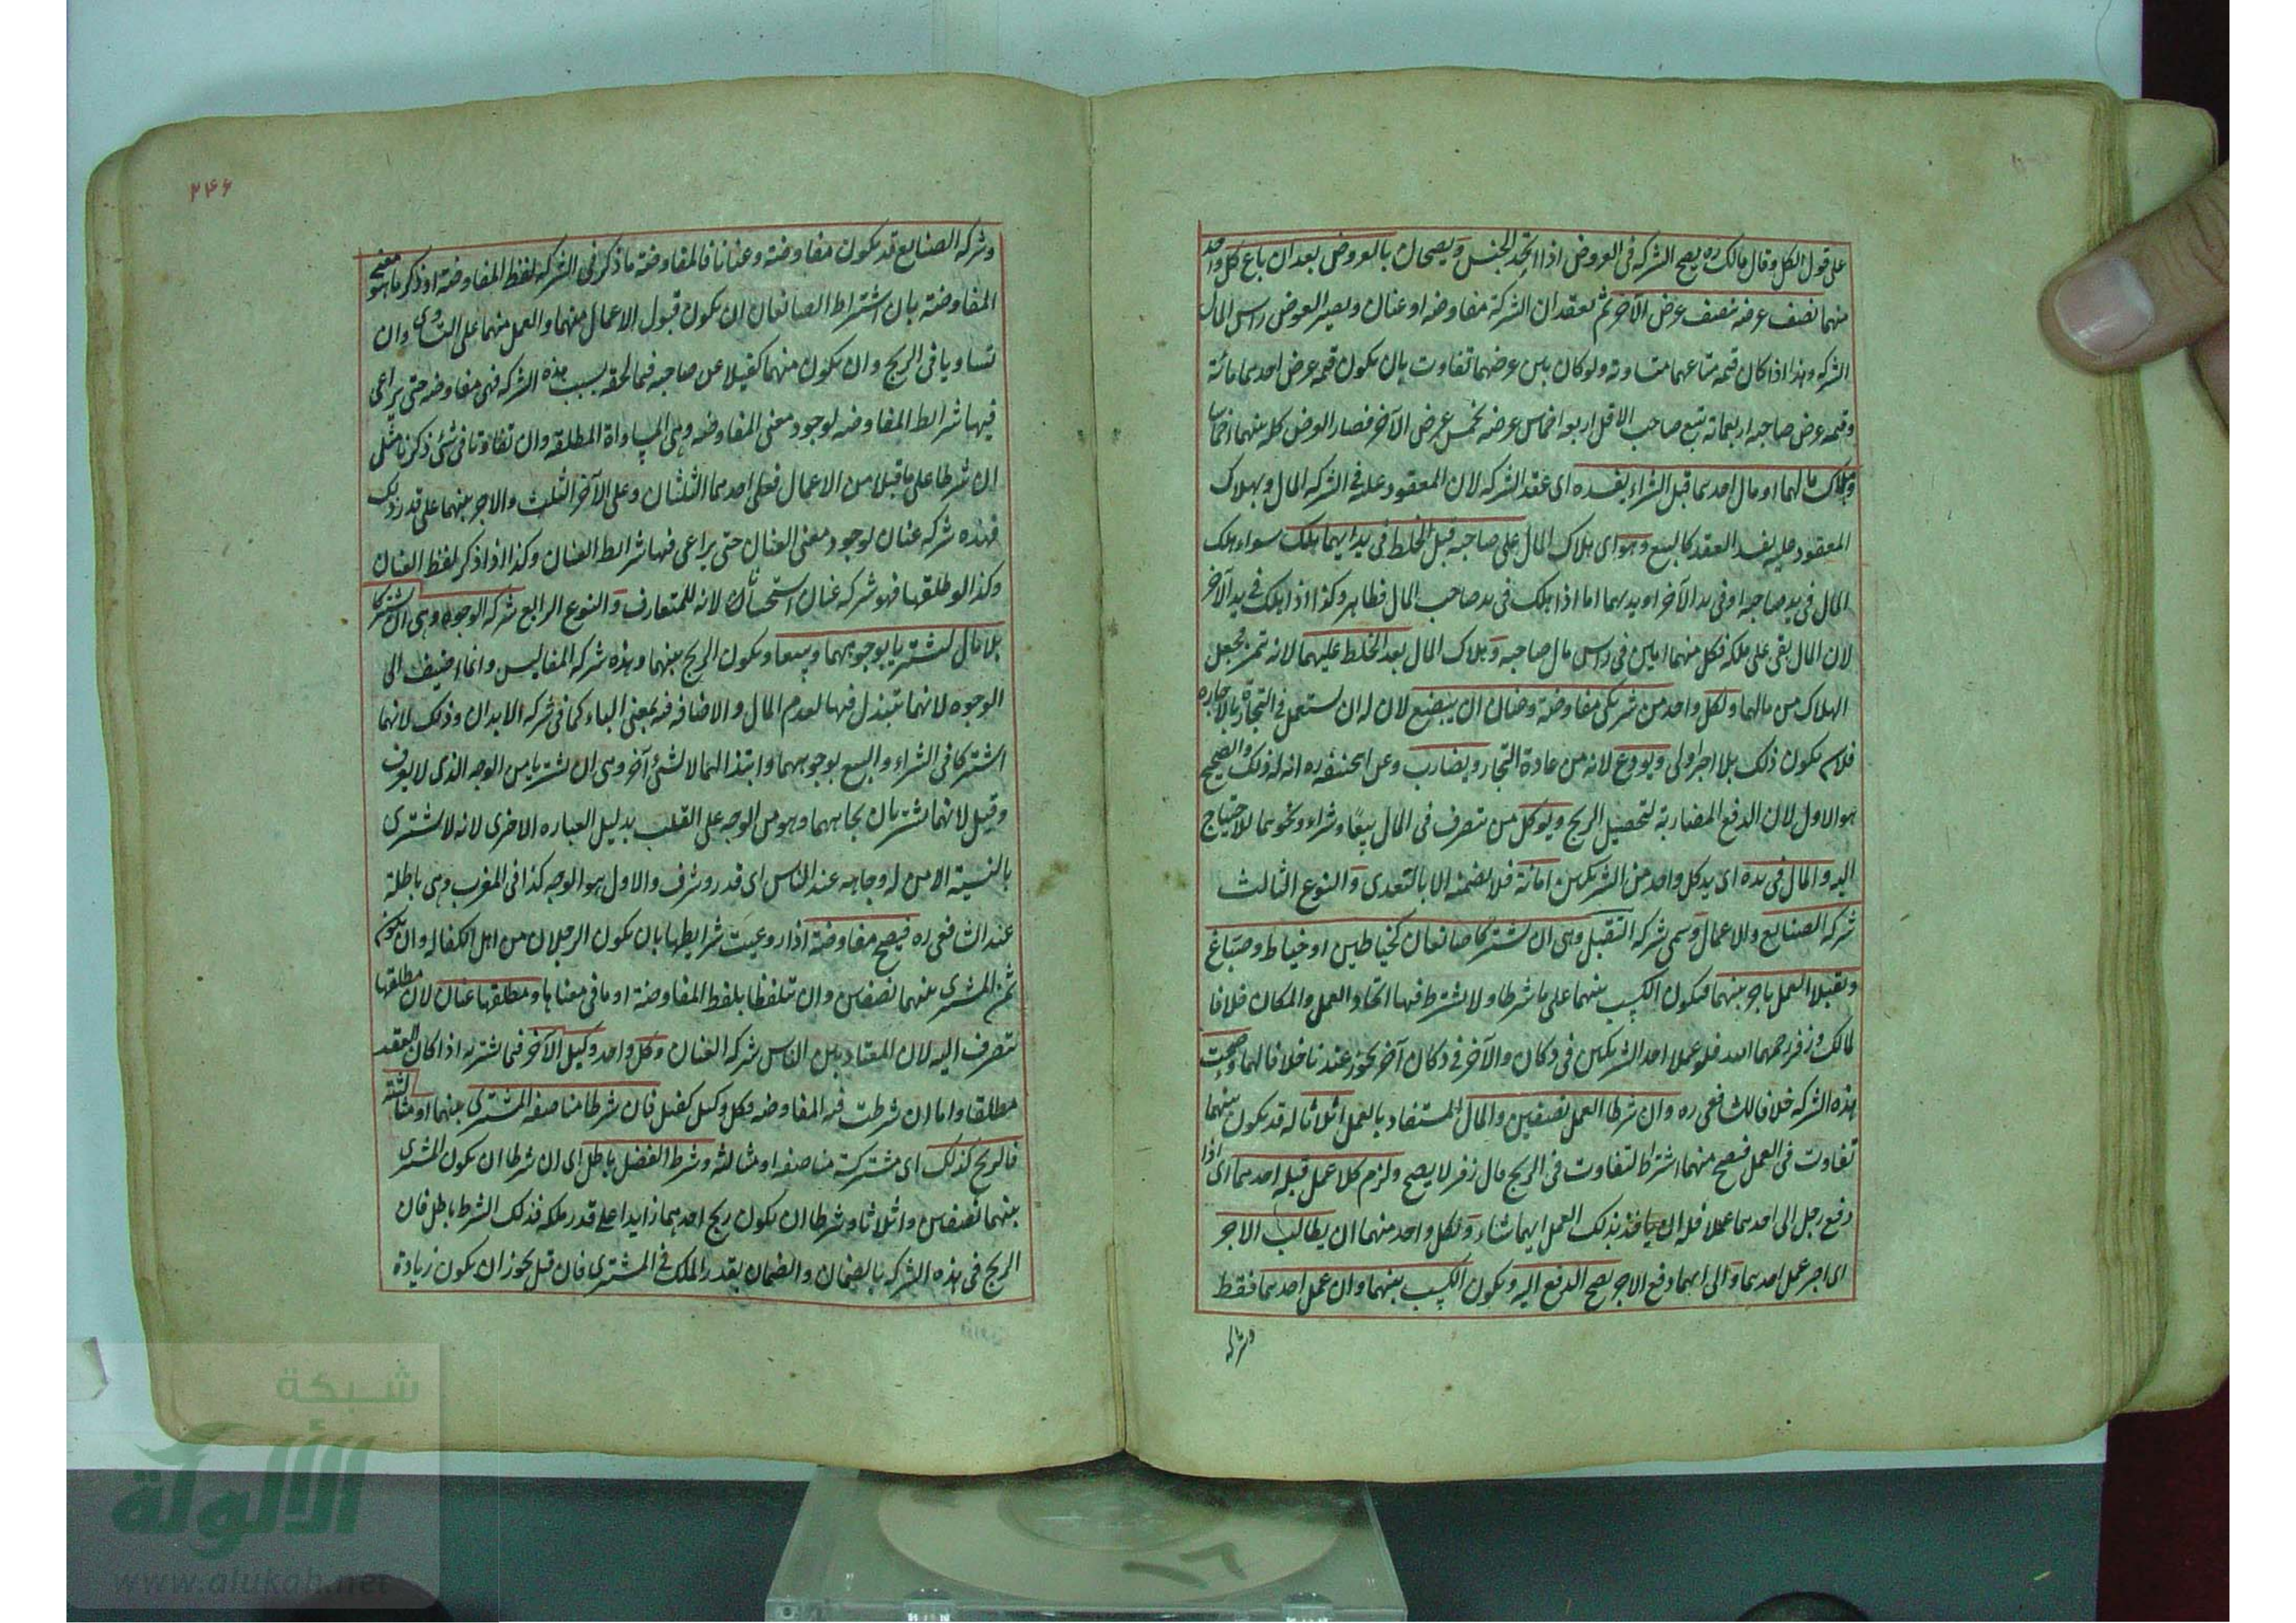 على قول الكل وقال مالك ره يصح الشركة فى العروض اذا اتحد الجنس ويصحان بالعروض بعد ان باع كل واحد
منهما نصف عرضه بنصف عرض الآخر ثم يعقدان الشركة مفاوضة او عنان ويصير العروض راس المال
الشركه وهذا اذا كان قيمه متاعهما متساوية ولو كان بين عرضهما تفاوت بان يكون قيمه عرض احدهما مائة
وقيمه عرض صاحبه اربعمائة يبيع صاحب الاقل اربعه اخماس عرضه بخمس عرض الآخر فصار العرض كله بينهما اخماسا
وبهلاك مالهما او مال احدهما قبل الشراء يفسده اى عقد الشركه لان المعقود عليه فى الشركه المال وبهلاك
المعقود عليه يفسد العقد كالبيع وهو اى هلاك المال على صاحبه قبل الخلط فى يد ايهما هلك سواء هلك
المال فى يد صاحبه او فى يد الآخر او يديهما اما اذا هلك فى يد صاحب المال فظاهر وكذا اذا هلك فى يد الآخر
لان المال بقى على ملكه فكل منهما امين فى راس مال صاحبه وهلاك المال بعد الخلط عليهما لانه لم يتميز فيجعل
الهلاك من مالهما ولكل واحد من شريكى مفاوضة وعنان ان يبضع لان له ان يستعمل فى التجارة بالاجاره
فلان يكون ذلك بلا اجر اولى ويودع لانه من عادة التجار ويضارب وعن ابيحنيفه ره انه له ذلك والصحيح
هو الاول لان الدفع المضاربة لتحصيل الربح ويوكل من يتصرف فى المال بيعا وشراء ونحوهما للاحتياج
اليه والمال فى يده اى يد كل واحد من الشريكين امانة فلا يضمنه الا بالتعدى والنوع الثالث
شركه الصنايع والاعمال وسمى شركه التقبل وهى ان يشتركا صانعان كخياطين او خياط وصباغ
وتقبلا العمل باجر بينهما فيكون الكسب بينهما على ما شرطا ولا يشترط فيها اتحاد العمل والمكان خلافا
لمالك وزفر رحمهما الله فلو عملا احد الشريكين فى دكان والآخر فى دكان آخر يجوز عندنا خلافا لهما وصحت
هذه الشركه خلافا للشافعى ره وان شرطا العمل نصفين والمال المستفاد بالعمل اثلاثا له قد يكون بينهما
تفاوت فى العمل فيصح منهما اشتراط التفاوت فى الربح قال زفر لا يصح ولزم كلا عمل قبله احدهما اى اذا
دفع رجل الى احدهما عملا فله ان ياخذ بذلك العمل ايهما شاء ولكل واحد منهما ان يطالب الاجر
اى اجر عمل احدهما والى ايهما دفع الاجر يصح الدفع اليه ويكون الكسب بينهما وان عمل احدهما فقط
وشركه
٢٤٦
وشركه الصنايع قد يكون مفاوضة وعنانا فالمفاوضة ما ذكر فى الشركه لفظ المفاوضة او ذكر ما هو معنى
المفاوضة بان اشتراط الصانعان ان يكون قبول الاعمال منهما والعمل منهما على التساوى وان
تساويا فى الربح وان يكون منهما كفيلا عن صاحبه فيما لحقه بسبب هذه الشركه فهى مفاوضه حتى يراعى
فيها شرايط المفاوضه لوجود معنى المفاوضه وهى المساواة المطلقه وان تفاوتا فى شئ ذكرنا مثل
ان شرطا على ما قبلا من الاعمال فعلى احدهما الثلثان وعلى الآخر الثلث والاجر بينهما على قدر ذلك
فهذه شركه عنان لوجود معنى العنان حتى يراعى فيها شرايط العنان وكذا اذا ذكر لفظ العنان
وكذا لو طلقها فهو شركه عنان استحسانا لانه للمتعارف والنوع الرابع شركه الوجوه وهى ان اشتركا
بلا مال ليشتريا بوجوههما ويبيعا ويكون الربح بينهما وهذه شركه المفاليس وانما اضيف الى
الوجوه لانهما تبتذل فيها لعدم المال والاضافه فيه بمعنى الباء كما فى شركه الابدان وذلك لانهما
اشتركا فى الشراء والبيع بوجوههما وابتذالهما لا لشئ آخر وهى ان يشتريا من الوجه الذى لا يعرف
وقيل لانهما يشتريان بجاههما وهو من الوجه على القلب بدليل العباره الاخرى لانه لا يشترى
بالنسية الا من له وجاهه عند الناس اى قدر وشرف والاول هو الوجه كذا فى المغرب وهى باطلة
عند الشافعى ره فيصح مفاوضة اذا روعيت شرايطها بان يكون الرجلان من اهل الكفاله وان يكون
ثمن المشترى بينهما نصفين وان يتلفظا بلفظ المفاوضة او ما فى معناها ومطلقها عنان لان مطلقها
يتصرف اليه لان المعتاد بين الناس شركه العنان وكل واحد وكيل الآخر فيما يشتريه اذا كان العقد
مطلقا واما ان شرطت فيه المفاوضه فكل وكيل كفيل فان شرطا مناصفه المشترى بينهما او مثالثته
فالربح كذلك اى مشتركة مناصفه او مثالثه وشرط الفضل باطل اى ان شرطا ان يكون المشترى
بينهما نصفين واثلاثا وشرطا ان يكون ربح احدهما زايدا على قدر ملكه فذلك الشرط باطل فان
الربح فى هذه الشركه بالضمان والضمان بقدر الملك فى المشترى فان قيل يجوز ان يكون زيادة
شبكة
الألولة
www.alukah.net